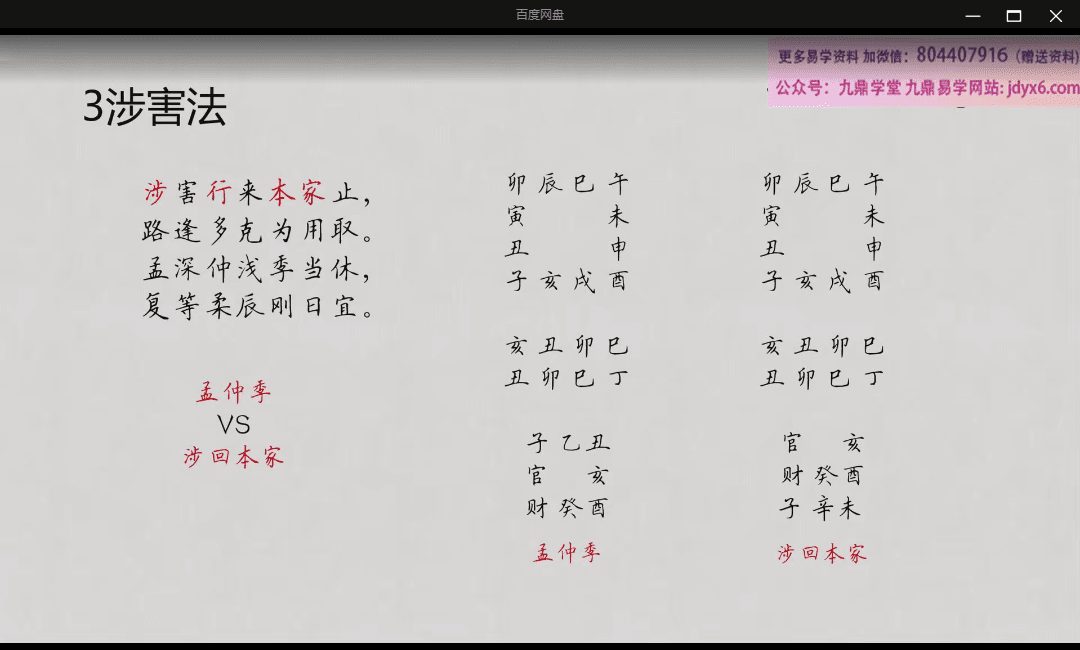 百度网盘
更多易学资料 加微信：804407916（赠送资料)
公众号：九鼎学堂 九鼎易学网站: jdyx6.com
3涉害法
涉害行来本家止，
路逢多克为用取。
孟深仲浅季当休，
复等柔辰刚日宜。
孟仲季
VS
涉回本家
卯辰巳午
寅 未
丑 申
子亥戌酉
亥丑卯巳
丑卯巳丁
子乙丑
官 亥
财癸酉
孟仲季
卯辰巳午
寅 未
丑 申
子亥戌酉
亥丑卯巳
丑卯巳丁
官 亥
财癸酉
子辛未
涉回本家